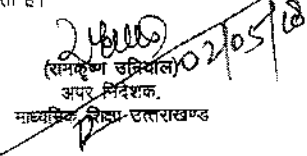 ता है।
02/05/18
(रामकृष्ण उनियाल)
अपर निदेशक,
माध्यमिक शिक्षा उत्तराखण्ड